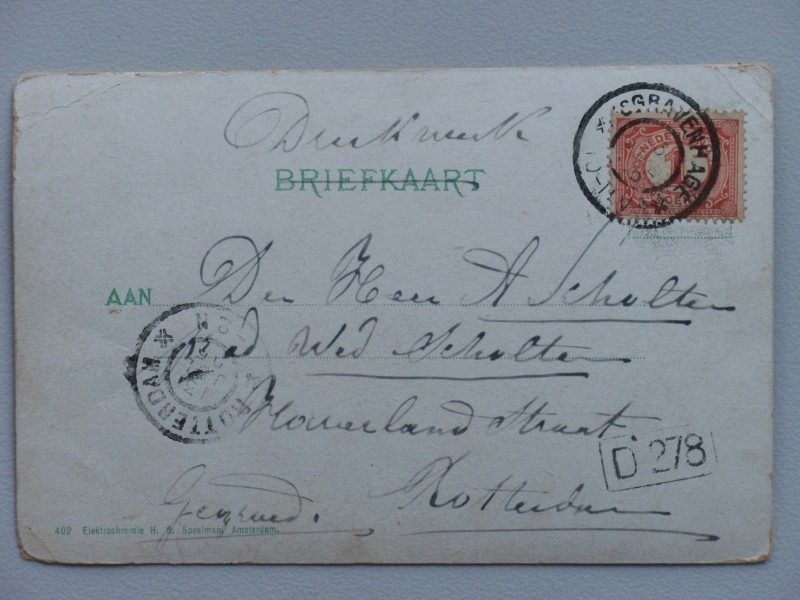 Drukwerk
BRIEFKAART
'SGRAVENHAGE
AAN Den Heer A Scholten
p ad Wed Scholten
ROTTERDAM
Straat
D 278
Rotterdam
402 Elektrochromie H. S. Speelman, Amsterdam.